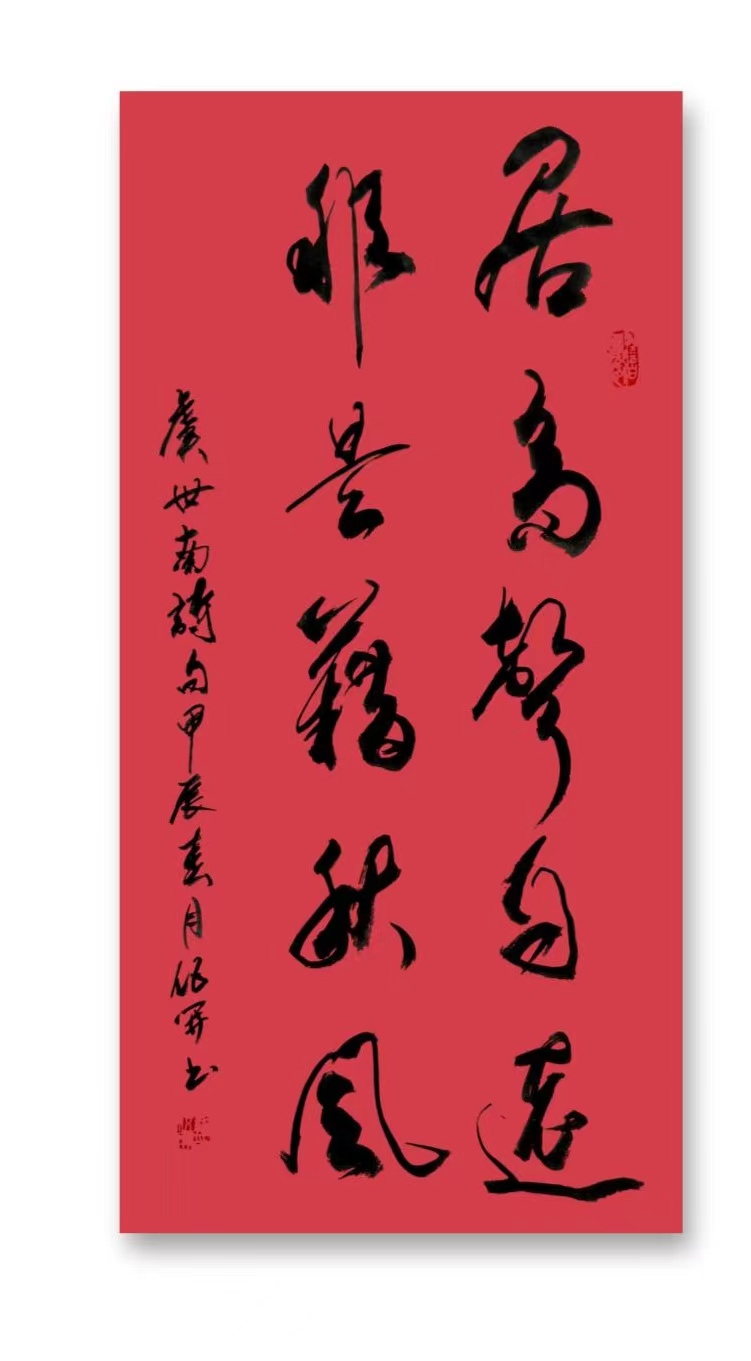 居高聲自遠
非是藉秋風
虞世南詩句甲辰春月
書